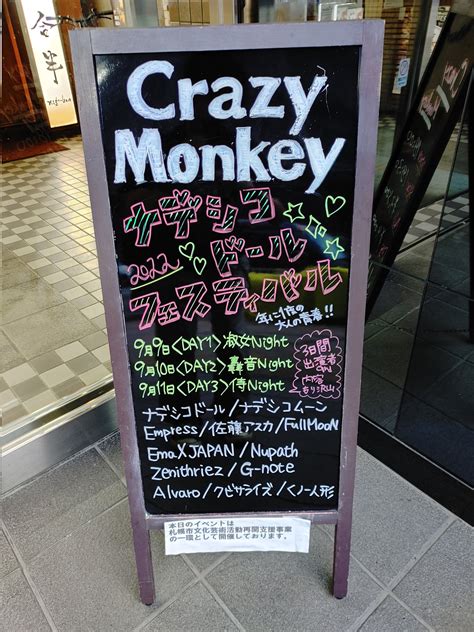 金半
Crazy
Monkey
ナデシコ
2022 ドール
フェスティバル
年に1夜の
大人の青春!!
9月9日<DAY1>淑女Night
9月10日<DAY2>轟音Night
9月11日<DAY3>侍Night
3日間
出演者
ナデシコドール/ナデシコムーン
Empress/佐藤アスカ/FullMooN
EmaXJAPAN/Nupath
Zenithriez/G-note
Alvaro/クビサライズ/くノ一人形
本日のイベントは
札幌市文化芸術活動再開支援事業
の一環として開催しております。